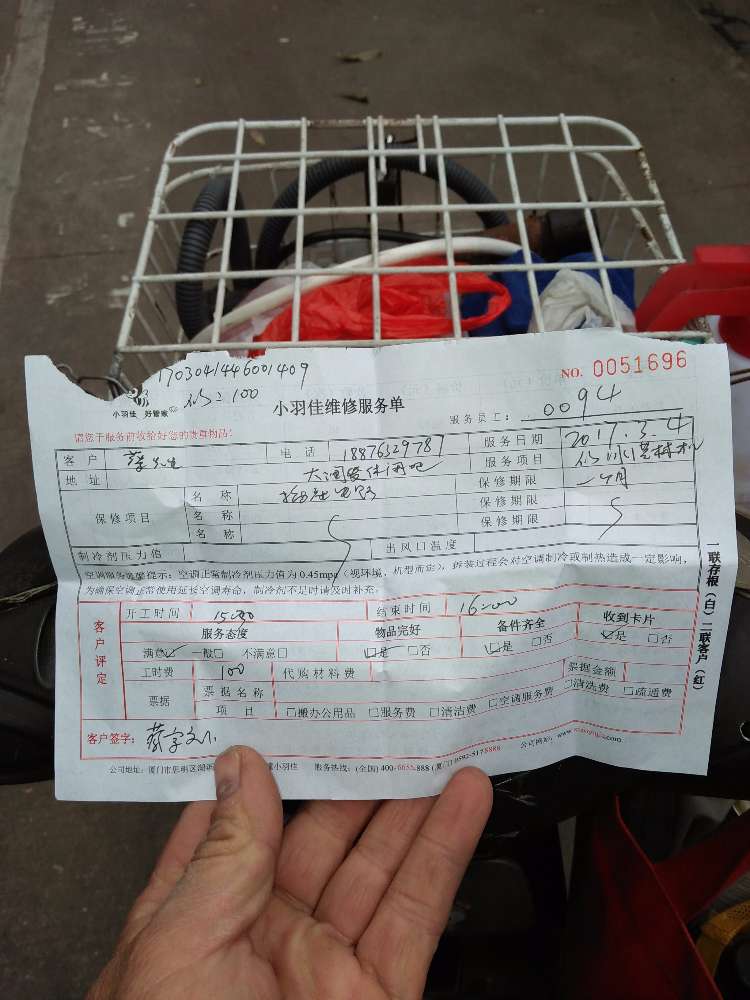 170304146001409
NO. 0051696
小羽佳 好管家
100
小羽佳维修服务单
服务员工: 0094
请您于服务前收拾好您的贵重物品!
客户 蔡先生 电话 18876329787 服务日期 2017.3.4
地址 大润发休闲吧 服务项目
保修项目 名称 保修期限 一个月
名称 保修期限
名称 保修期限
制冷剂压力值 出风口温度
空调服务类型提示: 空调正常制冷剂压力值为 0.45mpa (视环境, 机型而定), 拆装过程会对空调制冷或制热造成一定影响,
为确保空调正常使用延长空调寿命, 制冷剂不足时请及时补充。
客户评定
开工时间 15:00 结束时间 16:00
服务态度 物品完好 备件齐全 收到卡片
满意☑ 一般□ 不满意□ ☑是 □否 ☑是 □否 ☑是 □否
工时费 100 代购材料费
票据 票据名称 票据金额
项目 □搬办公用品 □服务费 □清洁费 □空调服务费 □清洗费 □疏通费
客户签字:
公司地址: 厦门市思明区 小羽佳 服务热线: (全国) 400-6655-888 (厦门) 0592-5178888 公司网站:
一联存根(白) 二联客户(红)